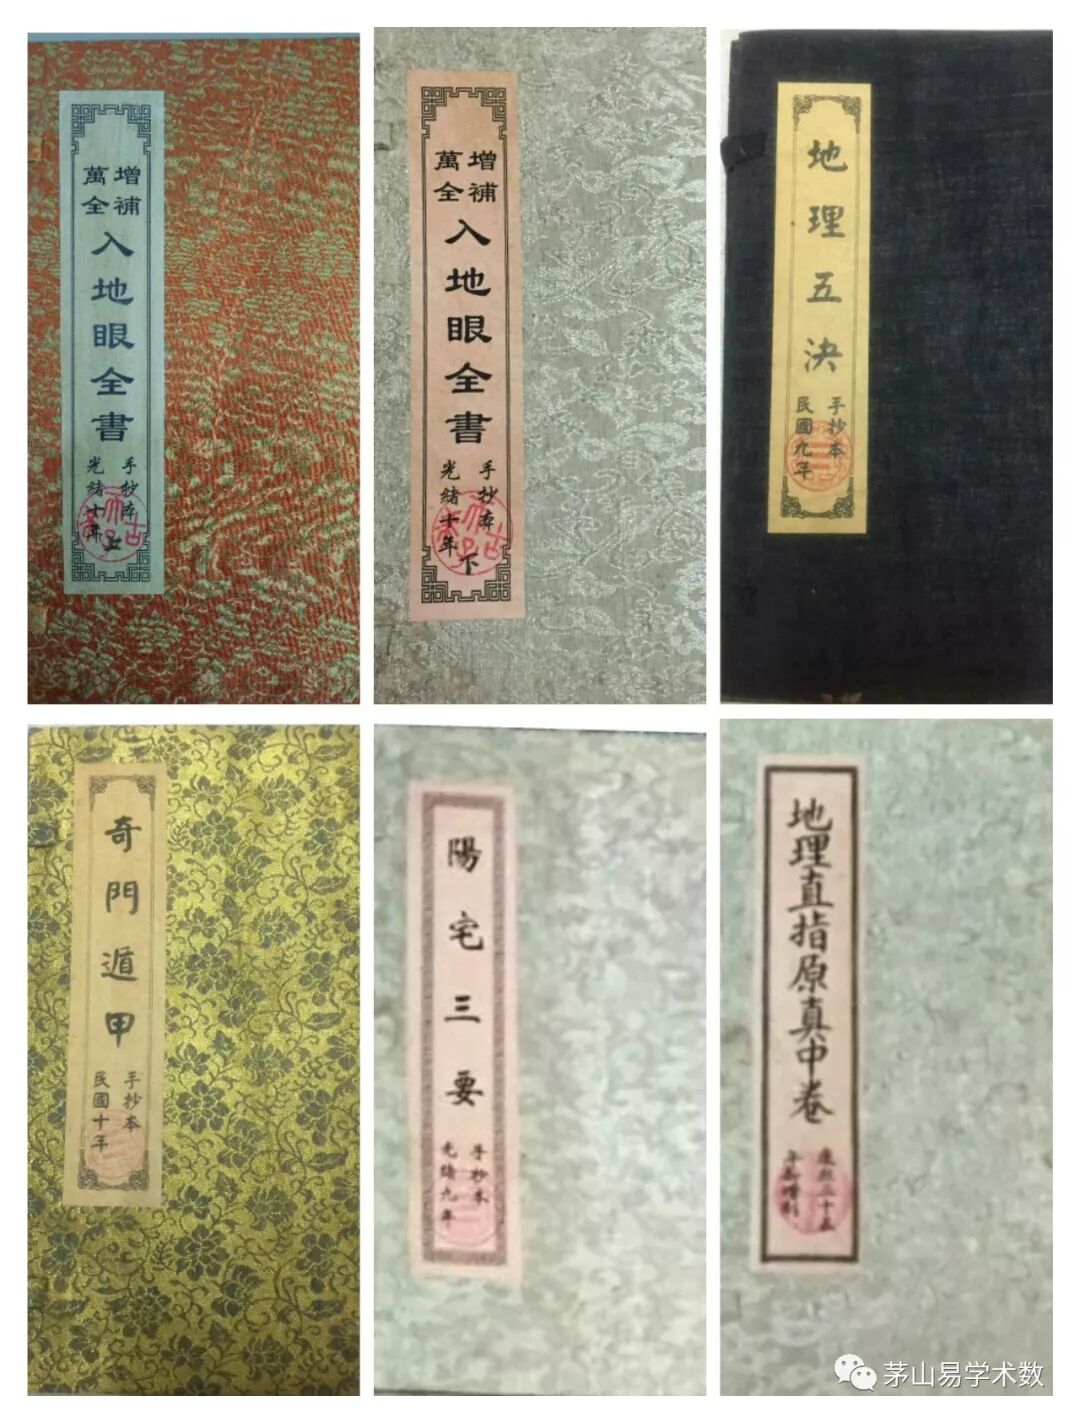 增補
萬全
入地眼全書
手抄本
光緒十年
上
增補
萬全
入地眼全書
手抄本
光緒十年
下
地理五決
手抄本
民國九年
奇門遁甲
手抄本
民國十年
陽宅三要
手抄本
光緒九年
地理直指原真中卷
康熙三十五
茅山易学术数